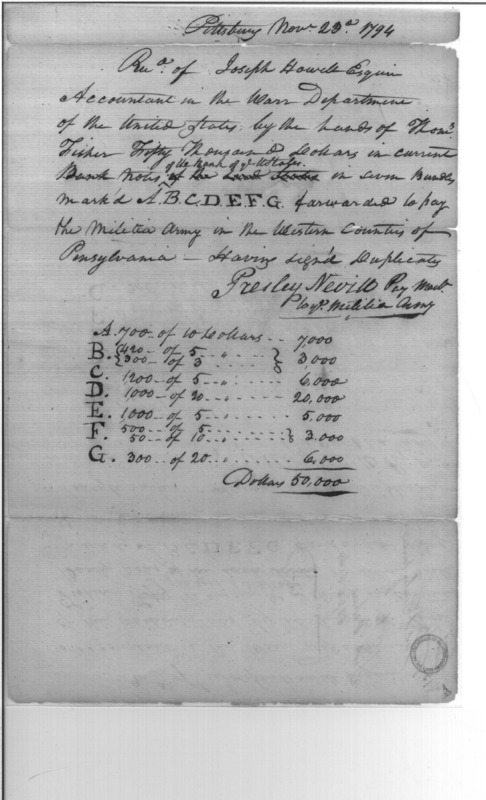 Pittsburg Novr. 23d. 1794
Recd. of Joseph Howell Esquire
Accountant in the Warr Department
of the United States, by the hands of Thoms.
Fisher Fifty Thousand Dollars in current
of the Bank of ye. UStates.
Bank Notes of the said States in seven Bundles
mark'd A. B. C. D. E. F. G. forwarded to pay
the Militia Army in the Western Counties of
Pensylvania — Having sign'd Duplicates
Presley Nevill Pay Mastr.
Militia Army
A. 700 — of 10 Dollars - - 7,000
B. {420 - of 5 - " - - - }
{300 - of 3 - - - - - } 3,000
C. 1200 - of 5 - " - - - - 6,000
D. 1000 - of 20 - " - - - - 20,000
E. 1000 - of 5 - " - - - - 5,000
F. 500 - of 5 - - - - - }
50 - of 10 - " - - - } 3,000
G. 300 - of 20 - - " - - - 6,000
Dollars 50,000